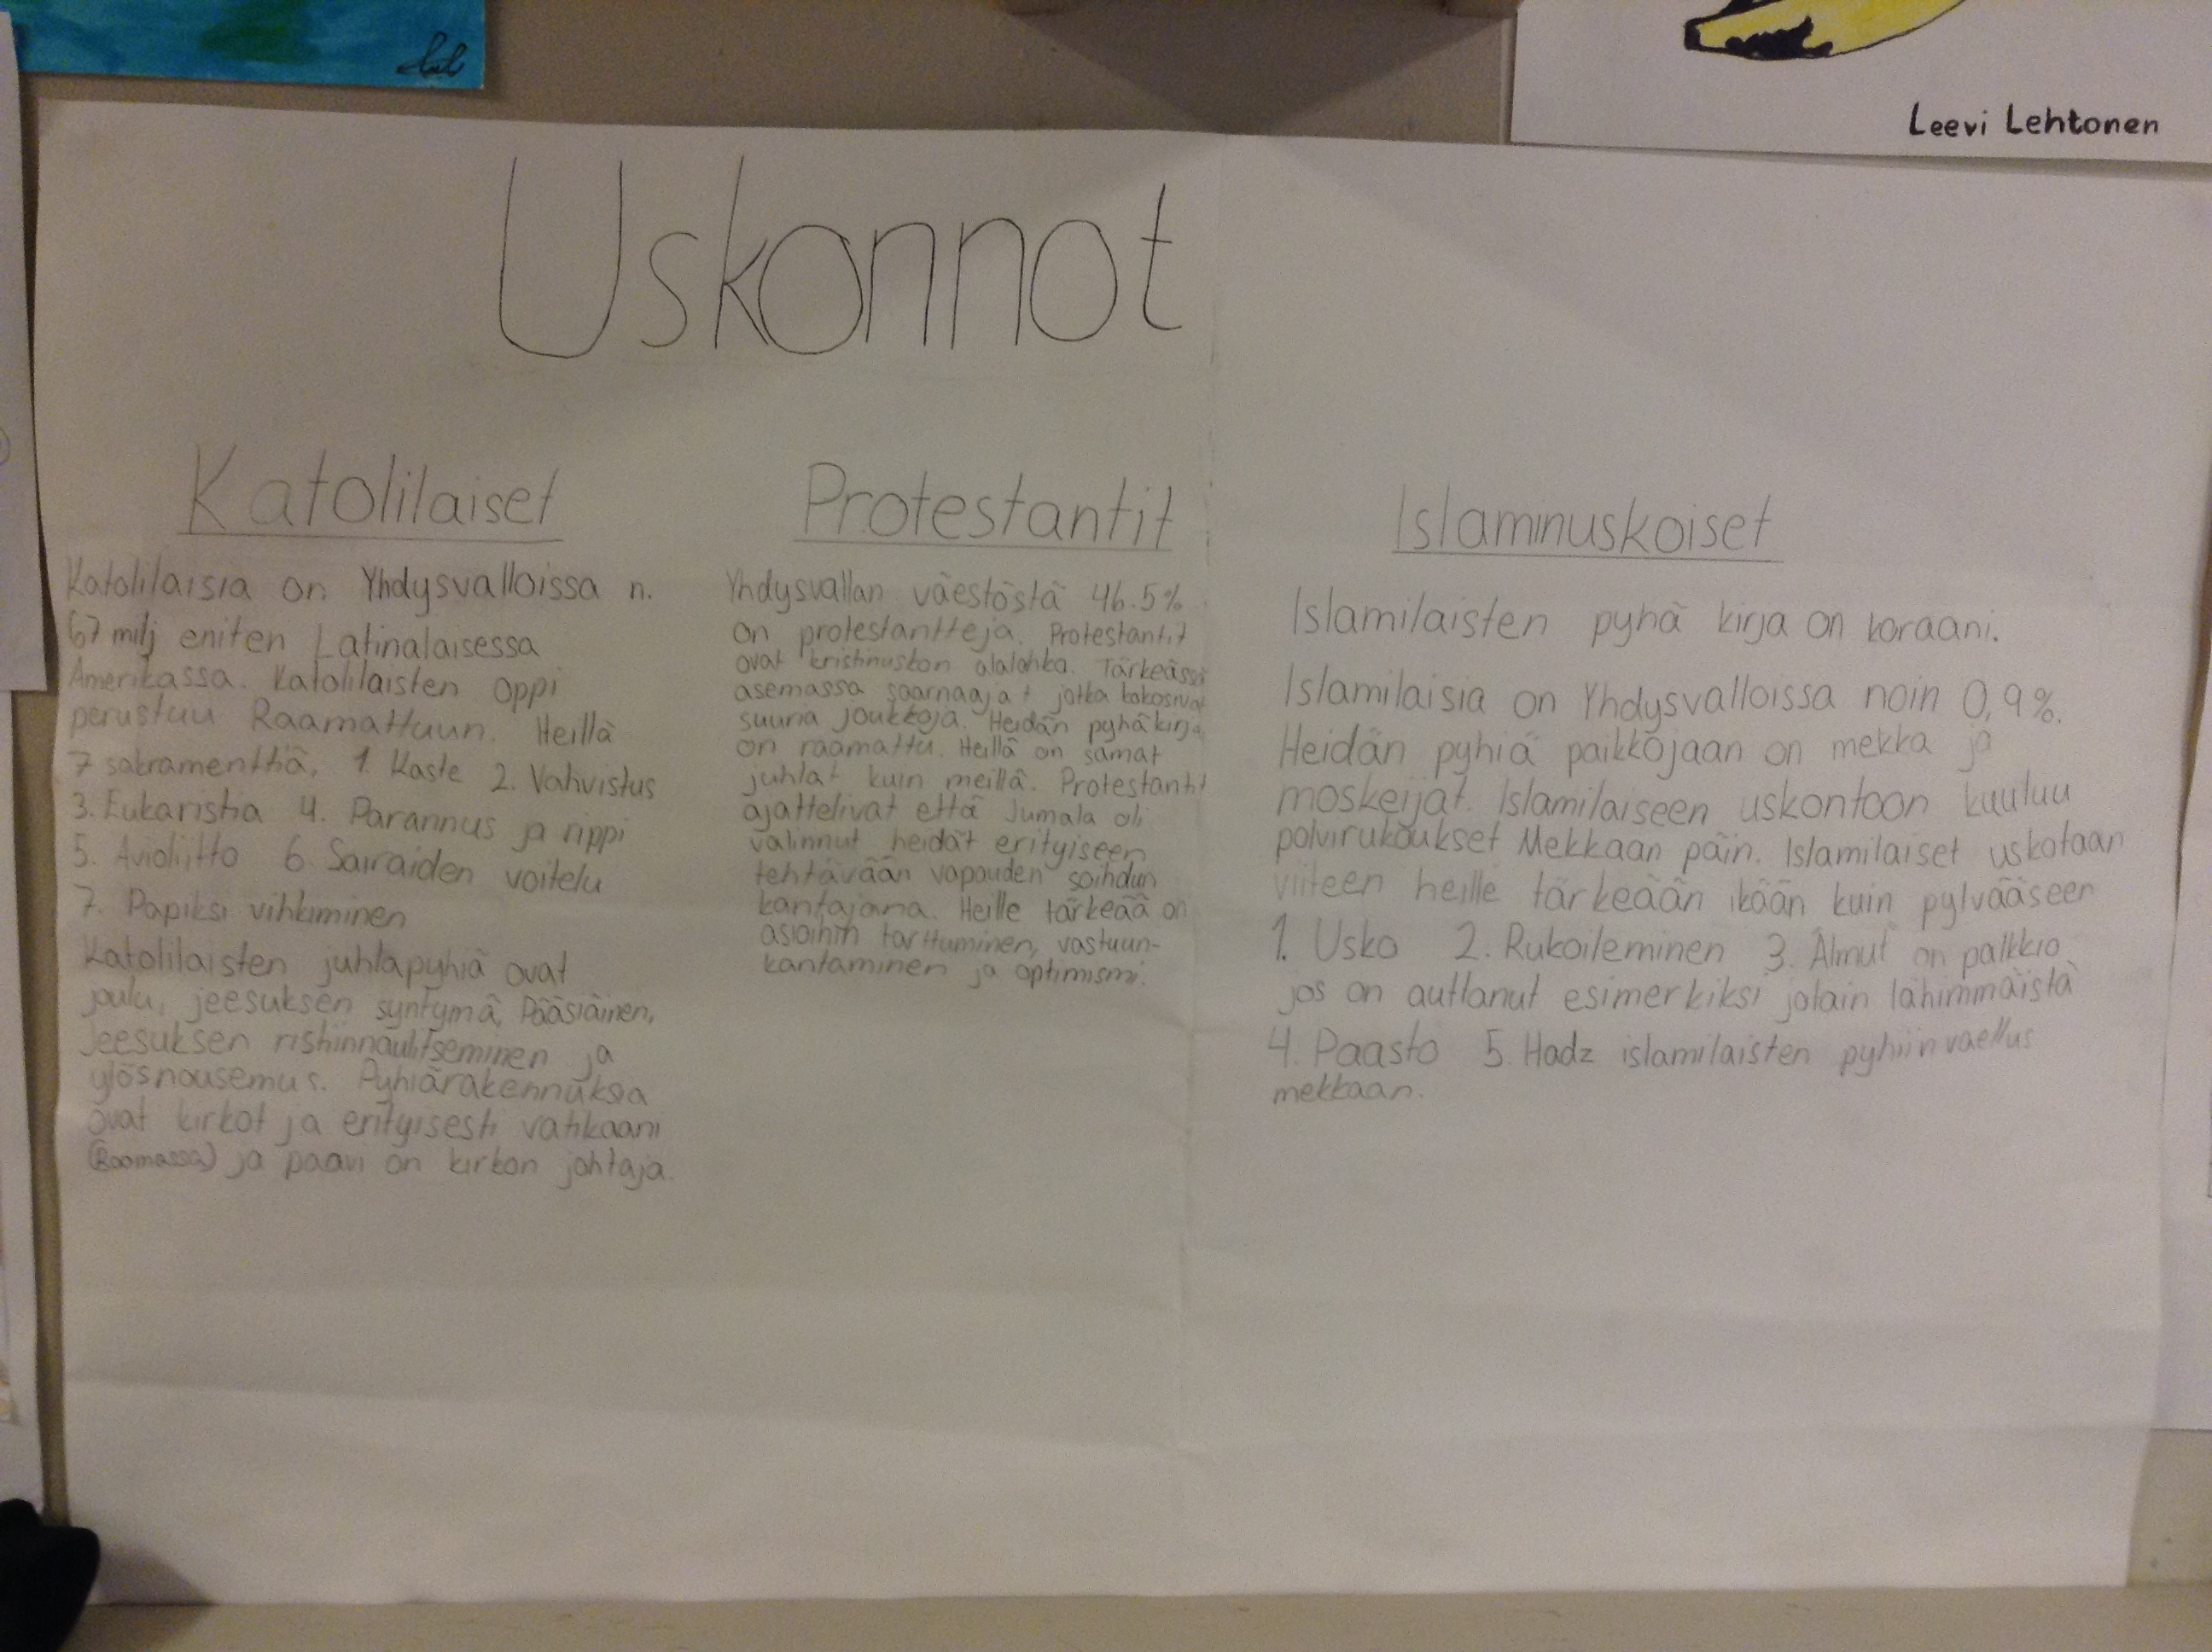 Leevi Lehtonen
Uskonnot
Katolilaiset
Katolilaisia on Yhdysvalloissa n.
67 milj eniten Latinalaisessa
Amerikassa. Katolilaisten oppi
perustuu Raamattuun. Heillä
7 sakramenttia, 1. Kaste 2. Vahvistus
3. Eukaristia 4. Parannus ja rippi
5. Avioliitto 6. Sairaiden voitelu
7. Papiksi vihkiminen
Katolilaisten juhlapyhiä ovat
joulu, jeesuksen syntymä, Pääsiäinen,
Jeesuksen ristiinnaulitseminen ja
ylösnousemus. Pyhiärakennuksia
ovat kirkot ja erityisesti vatikaani
(Roomassa) ja paavi on kirkon johtaja.
Protestantit
Yhdysvallan väestöstä 46.5%
on protestantteja. Protestantit
ovat kristinuskon alalahko. Tärkeässä
asemassa saarnaajat jotka kokosivat
suuria joukkoja. Heidän pyhäkirja
on raamattu. Heillä on samat
juhlat kuin meillä. Protestantit
ajattelivat että Jumala oli
valinnut heidät erityiseen
tehtävään vapauden soihdun
kantajana. Heille tärkeää on
asioihin tarttuminen, vastuun-
kantaminen ja optimismi.
Islaminuskoiset
Islamilaisten pyhä kirja on koraani.
Islamilaisia on Yhdysvalloissa noin 0,9%.
Heidän pyhiä paikkojaan on mekka ja
moskeijat. Islamilaiseen uskontoon kuuluu
polvirukoukset Mekkaan päin. Islamilaiset uskotaan
viiteen heille tärkeään ikään kuin pylvääseen
1. Usko 2. Rukoileminen 3. Almut on palkkio
jos on auttanut esimerkiksi jotain lähimmäistä
4. Paasto 5. Hadz islamilaisten pyhiinvaellus
mekkaan.